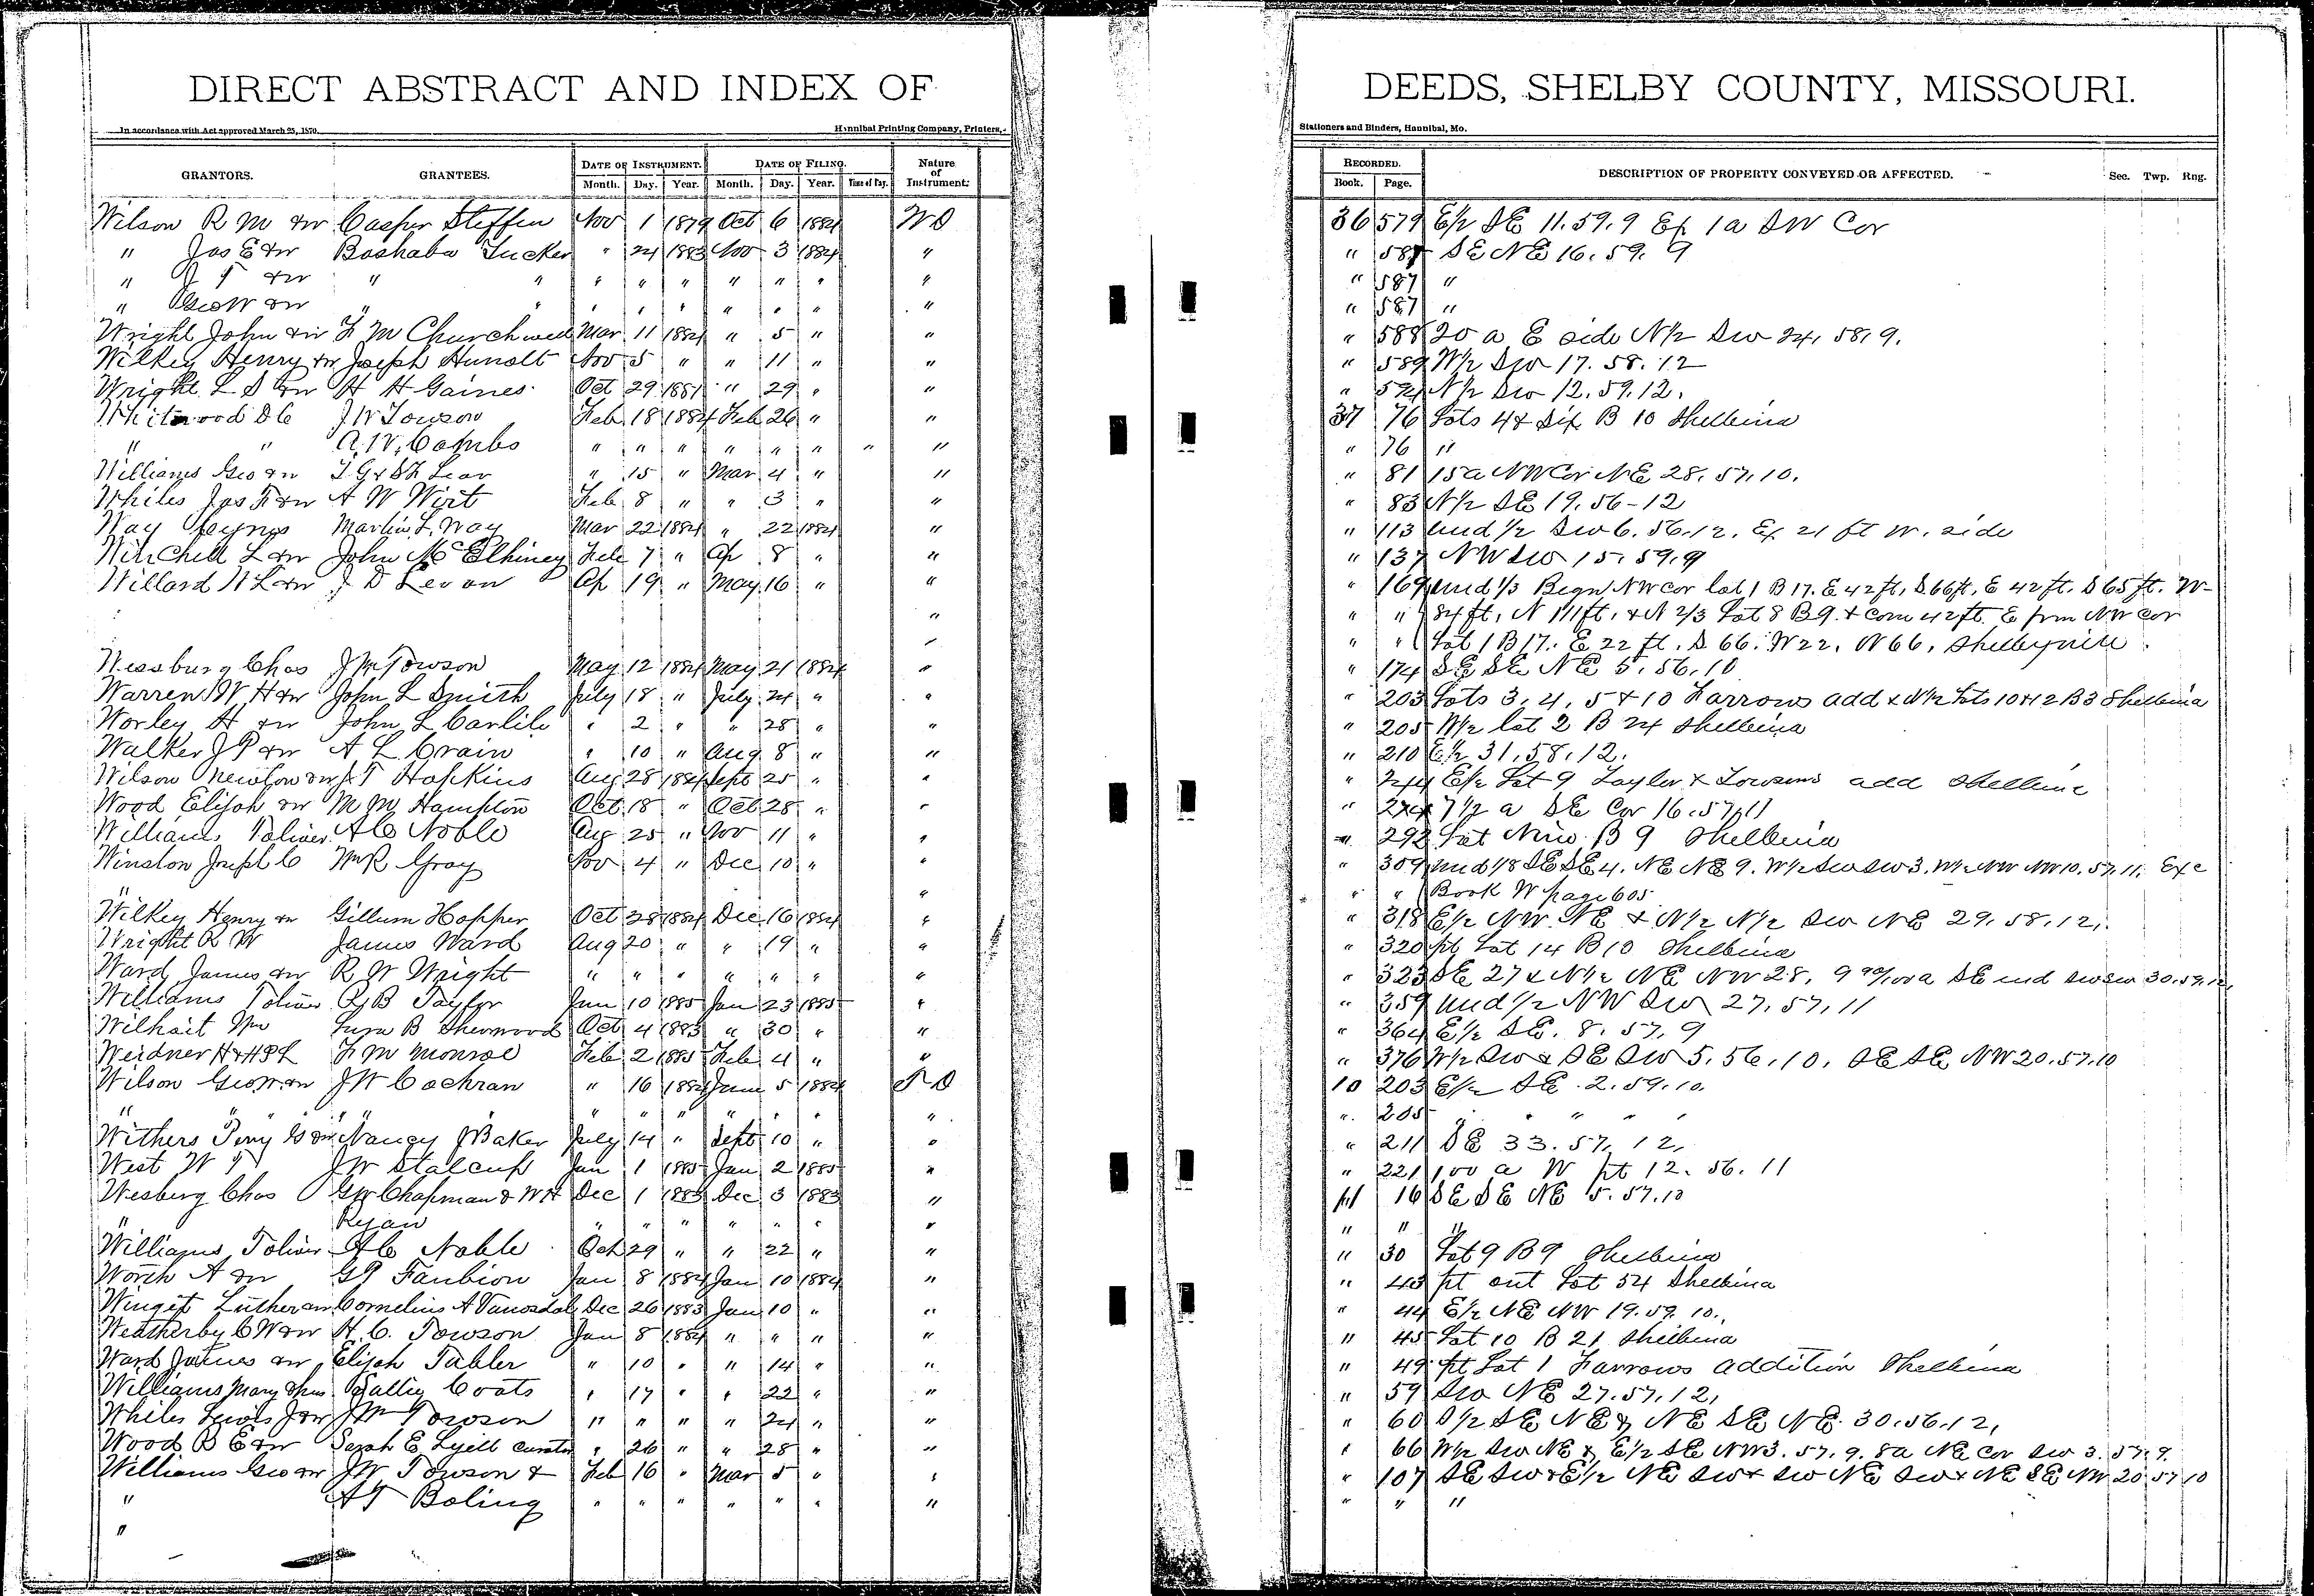 DIRECT ABSTRACT AND INDEX OF DEEDS, SHELBY COUNTY, MISSOURI.
In accordance with Act approved March 25, 1870. Hannibal Printing Company, Printers, Stationers and Binders, Hannibal, Mo.
GRANTORS. GRANTEES. DATE OF INSTRUMENT. Month. Day. Year. DATE OF FILING. Month. Day. Year. Time of Day. Nature of Instrument. RECORDED. Book. Page. DESCRIPTION OF PROPERTY CONVEYED OR AFFECTED. Sec. Twp. Rng.
Wilson R M &w Casper Steffen Nov 1 1879 Oct 6 1884 WD 36 579 E½ SE 11.59.9 Ex 1a SW Cor
" Jas E &w Bashaba Tucker " 24 1883 Nov 3 1884 " " 587 SE NE 16.59.9
" J T &w " " " " " " " " " " 587 "
" Geo W &w " " " " " " " " " " 587 "
Wright John &w F M Churchwell Mar 11 1884 " 5 " " " 588 20 a E side N½ SW 24.58.9.
Wilkey Henry &w Joseph Hunolt Nov 5 " " 11 " " " 589 W½ SW 17.58.12
Wright L S &w H H Gaines Oct 29 1881 " 29 " " " 594 N½ SW 12.59.12.
Whitewood D C J W Towson Feb 18 1884 Feb 26 " " 37 76 Lots 4 & Six B 10 Shelbina
" " A. W. Combs " " " " " " " " " 76 "
Williams Geo &w T. G & S F Lear " 15 " Mar 4 " " " 81 15a NW Cor NE 28.57.10.
Whiles Jas F &w A W Wirt Feb 8 " " 3 " " " 83 N½ SE 19.56-12
Way Martin L. Way Mar 22 1884 " 22 1884 " " 113 und ½ SW 6.56.12. Ex 21 ft W. side
Winchell L &w John McElhiney Feb 7 " Ap 8 " " " 137 NW SW 15.59.9
Willard W L &w J D Levan Ap 19 " May 16 " " " 169 und ⅓ Begn NW cor lot 1 B 17. E 42 ft, S 66 ft, E 42 ft. S 65 ft. W-
" " " 84 ft, N 111 ft, & N ⅔ Lot 8 B 9. & com 42 ft. E frm NW cor
" " " Lot 1 B 17. E 22 ft. S 66. W 22, N 66, Shelbyville
Wessburg Chas J M Towson May 12 1884 May 21 1884 " " 174 SE SE NE 5.56.10
Warren W H &w John L Smith July 18 " July 24 " " " 203 Lots 3, 4, 5 & 10 Farrows add & N½ Lots 10 & 12 B 3 Shelbina
Worley H &w John L Carlile " 2 " " 28 " " " 205 W½ lot 2 B 24 Shelbina
Walker J P &w A L Crain " 10 " Aug 8 " " " 210 E½ 31.58.12.
Wilson Newton &w J T Hopkins Aug 28 1884 Sept 25 " " " 244 E½ Lot 9 Taylor & Towsons add Shelbina
Wood Elijah &w M M Hampton Oct 18 " Oct 28 " " " 274 7½ a SE Cor 16.57.11
Williams Toliver A C Noble Aug 25 " Nov 11 " " " 292 Lot Nine B 9 Shelbina
Winston Joseph C Wm R Gray Nov 4 " Dec 10 " " " 309 und ⅛ SE SE 4. NE NE 9. W½ SW SW 3. W½ NW NW 10.57.11. Exc
" " " " Book W page 605
Wilkey Henry &w Gillum Hopper Oct 28 1884 Dec 16 1884 " " 318 E½ NW NE & N½ N½ SW NE 29.58.12.
Wright R W James Ward Aug 20 " " 19 " " " 320 pt Lot 14 B 10 Shelbina
Ward James &w R W Wright " " " " " " " " 323 SE 27 & N½ NE NW 28, 9 90/100 a SE end SW SW 30.59.12
Williams Toliver R B Taylor Jan 10 1885 Jan 23 1885 " " 359 und ½ NW SW 27.57.11
Wilhait Wm Lura B Sherwood Oct 4 1883 " 30 " " " 364 E½ SE. 8.57.9
Weidner H & H P L F M Monroe Feb 2 1885 Feb 4 " " " 376 W½ SW & SE SW 5.56.10. SE SE NW 20.57.10
Wilson Geo W &w J W Cochran " 16 1884 June 5 1884 TD 10 203 E½ SE 2.59.10.
" " " " " " " " " " " " 205 " " " "
Withers Perry G &w Nancy J Baker July 14 " Sept 10 " " " 211 SE 33.57.12.
West W T J W Stalcup Jan 1 1885 Jan 2 1885 " " 221 100 a W pt 12.56.11
Wesberg Chas G W Chapman & W H Dec 1 1883 Dec 3 1883 " 11 16 SE SE NE 5.57.10
" Ryan " " " " " " " " " "
Williams Toliver A C Noble Oct 29 " " 22 " " " 30 Lot 9 B 9 Shelbina
Worth A &w G T Faubion Jan 8 1884 Jan 10 1884 " " 43 pt out Lot 54 Shelbina
Winget Luther &w Cornelius A Vanosdol Dec 26 1883 Jan 10 " " " 44 E½ NE NW 19.59.10.
Weatherby C W &w H. C. Towson Jan 8 1884 " " " " " 45 Lot 10 B 21 Shelbina
Ward James &w Elijah Tabler " 10 " " 14 " " " 49 pt Lot 1 Farrows addition Shelbina
Williams Mary & hus Sallie Coats " 17 " " 22 " " " 59 SW NE 27.57.12.
Whiles Lewis J &w J M Towson " " " " 24 " " " 60 S½ SE NE & NE SE NE 30.56.12.
Wood B E &w Sarah E Lyell Curator " 26 " " 28 " " " 66 W½ SW NE & E½ SE NW 3.57.9. 8a NE Cor SW 3.57.9.
Williams Geo &w J W Towson & Feb 16 " Mar 5 " " " 107 SE SW & E½ NE SW & SW NE SW & NE SE NW 20 57 10
" A T Boling " " " " " " " " " "
"